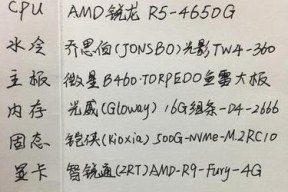 CPU AMD锐龙 R5-4650G
水冷 乔思伯(JONSBO)光影TW4-360
主板 微星B460·TORPEDO鱼雷大板
内存 光威(Gloway)16G组条-D4-2666
固态 铠侠(Kioxia)500G-NVMe-M.2RC10
显卡 智锐通(ZRT)AMD-R9-Fury-4G